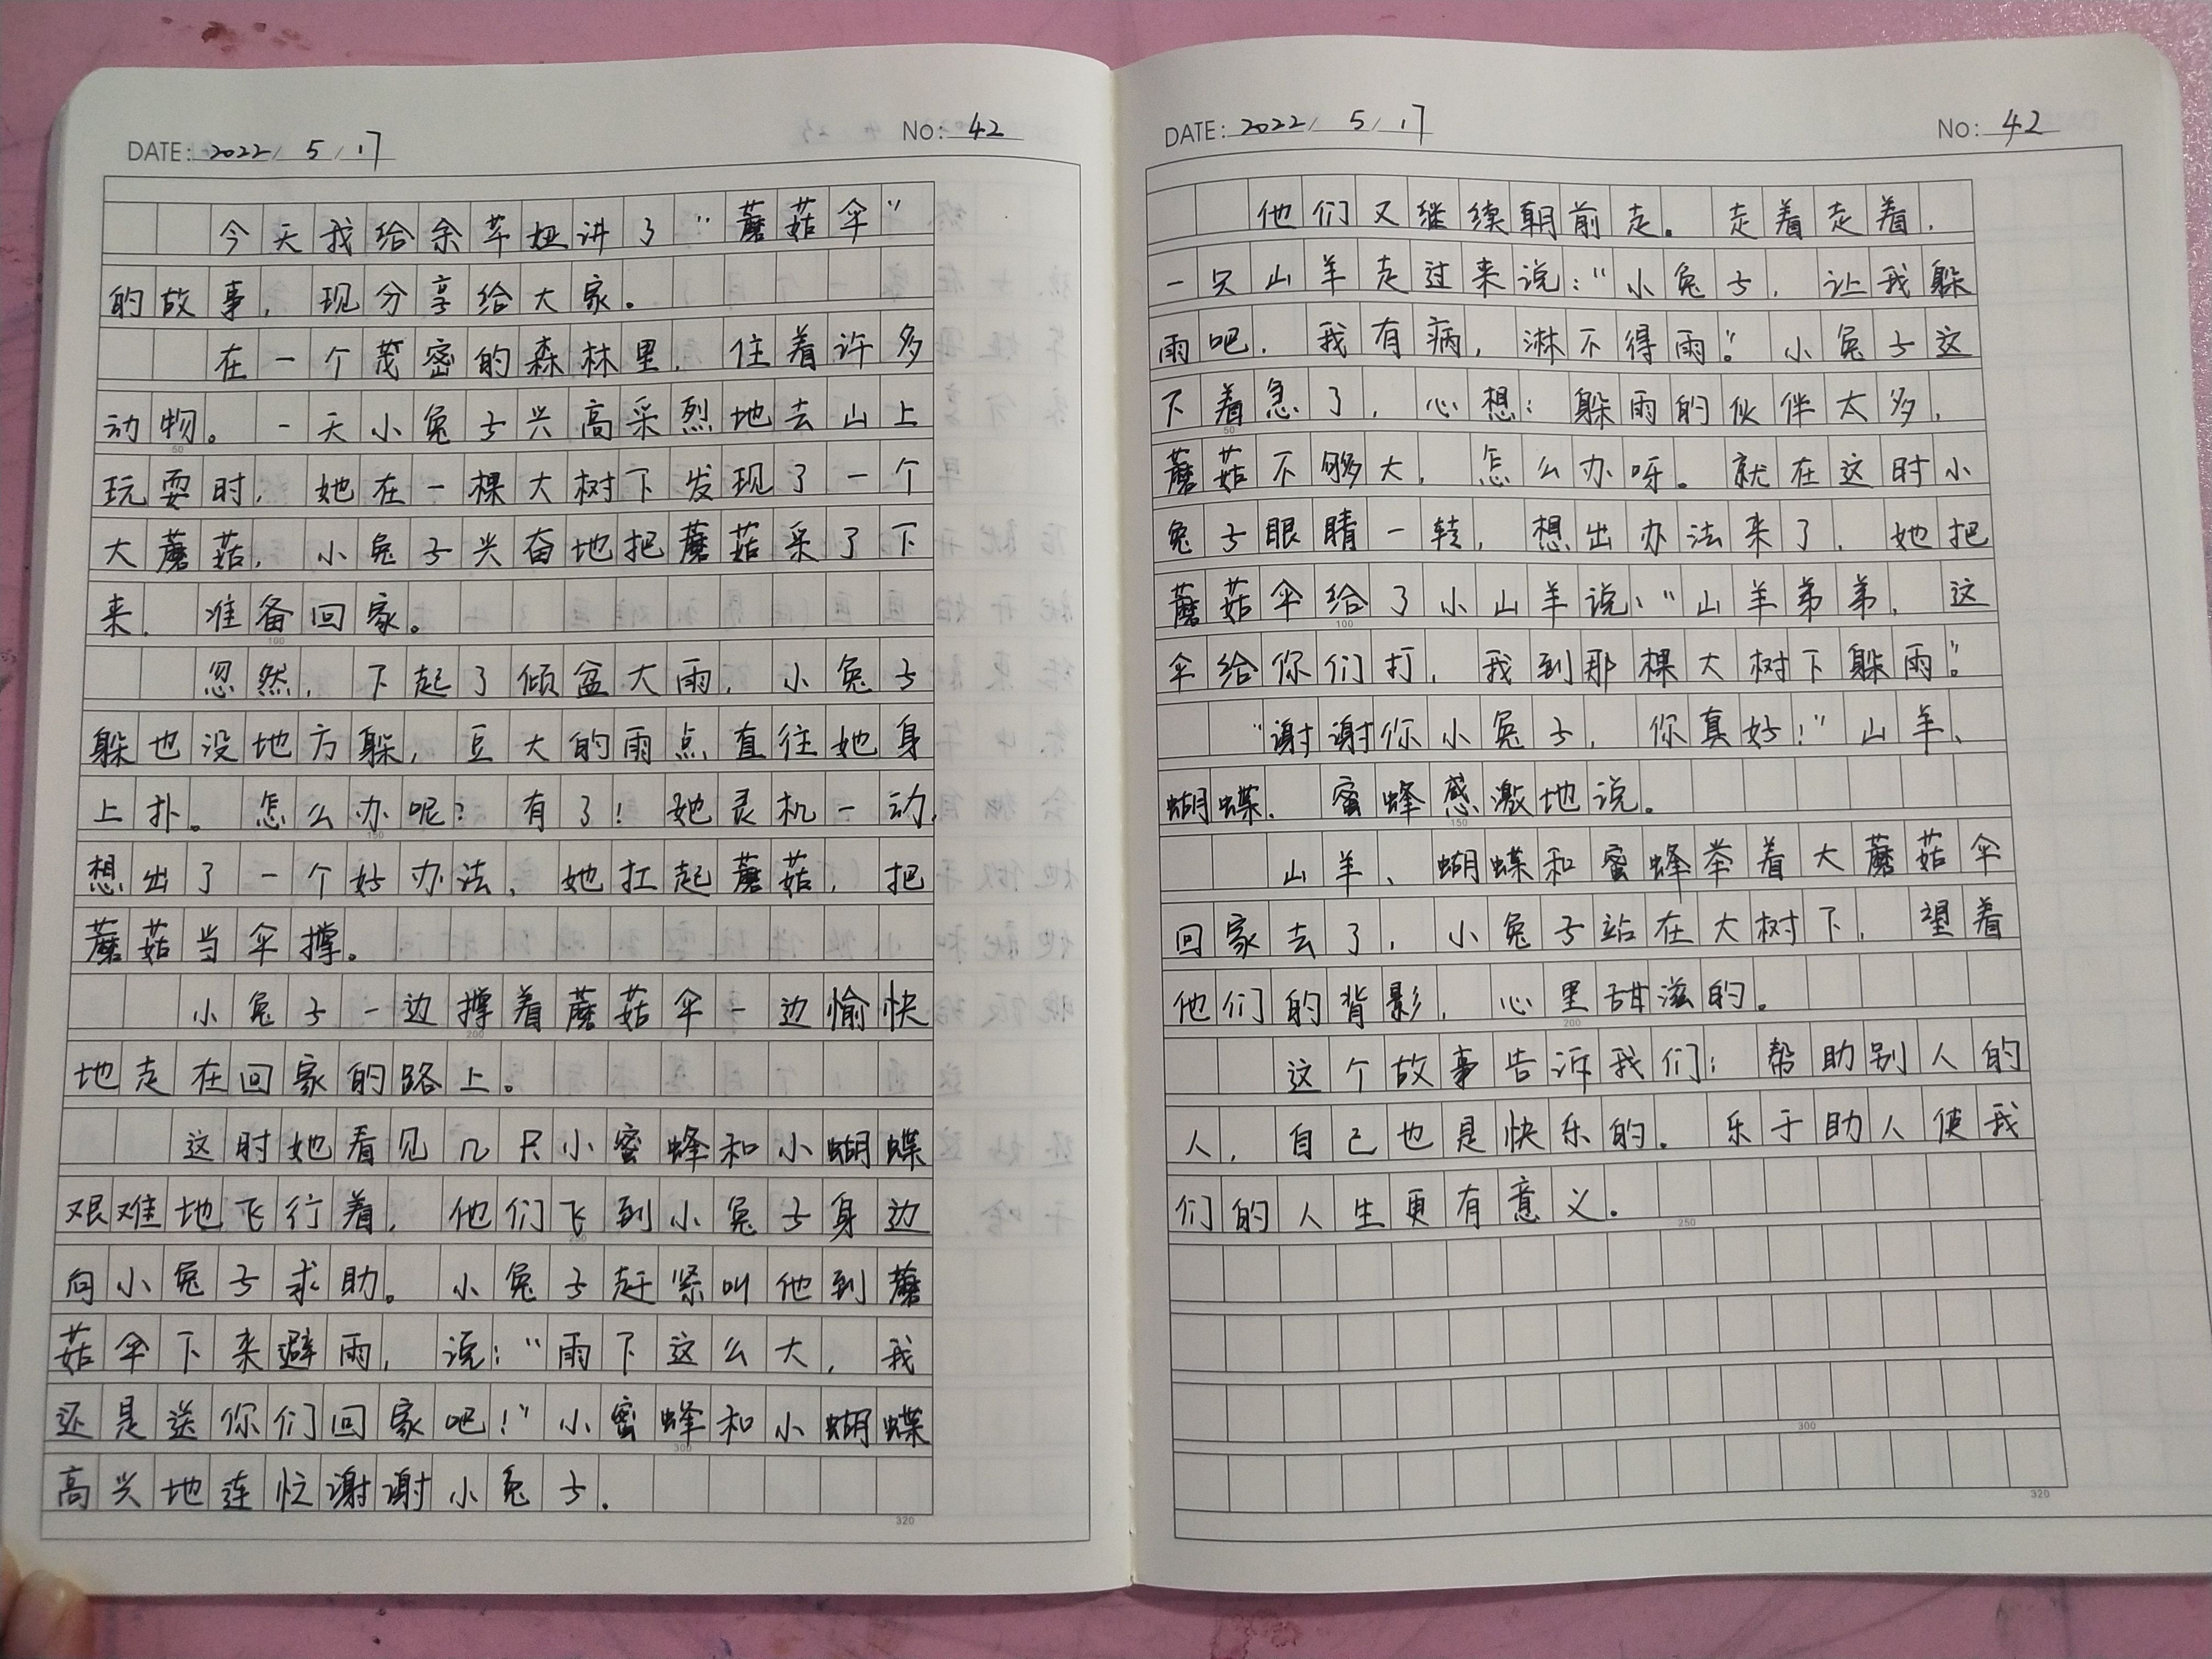 DATE: 2022 / 5 / 17 No: 42
今天我给余芊娅讲了“蘑菇伞”
的故事,现分享给大家。
在一个茂密的森林里,住着许多
动物。一天小兔子兴高采烈地去山上
玩耍时,她在一棵大树下发现了一个
大蘑菇,小兔子兴奋地把蘑菇采了下
来,准备回家。
忽然,下起了倾盆大雨,小兔子
躲也没地方躲,豆大的雨点直往她身
上扑。怎么办呢?有了!她灵机一动,
想出了一个好办法,她扛起蘑菇,把
蘑菇当伞撑。
小兔子一边撑着蘑菇伞一边愉快
地走在回家的路上。
这时她看见几只小蜜蜂和小蝴蝶
艰难地飞行着,他们飞到小兔子身边
向小兔子求助。小兔子赶紧叫他到蘑
菇伞下来避雨,说:“雨下这么大,我
还是送你们回家吧!”小蜜蜂和小蝴蝶
高兴地连忙谢谢小兔子.
320
DATE: 2022 / 5 / 17 No: 42
他们又继续朝前走。走着走着,
一只山羊走过来说:“小兔子,让我躲
雨吧,我有病,淋不得雨。”小兔子这
下着急了,心想:躲雨的伙伴太多,
蘑菇不够大,怎么办呀。就在这时小
兔子眼睛一转,想出办法来了,她把
蘑菇伞给了小山羊说:“山羊弟弟,这
伞给你们打,我到那棵大树下躲雨。”
“谢谢你小兔子,你真好!”山羊、
蝴蝶、蜜蜂感激地说。
山羊、蝴蝶和蜜蜂举着大蘑菇伞
回家去了,小兔子站在大树下,望着
他们的背影,心里甜滋的。
这个故事告诉我们:帮助别人的
人,自己也是快乐的。乐于助人使我
们的人生更有意义。
320